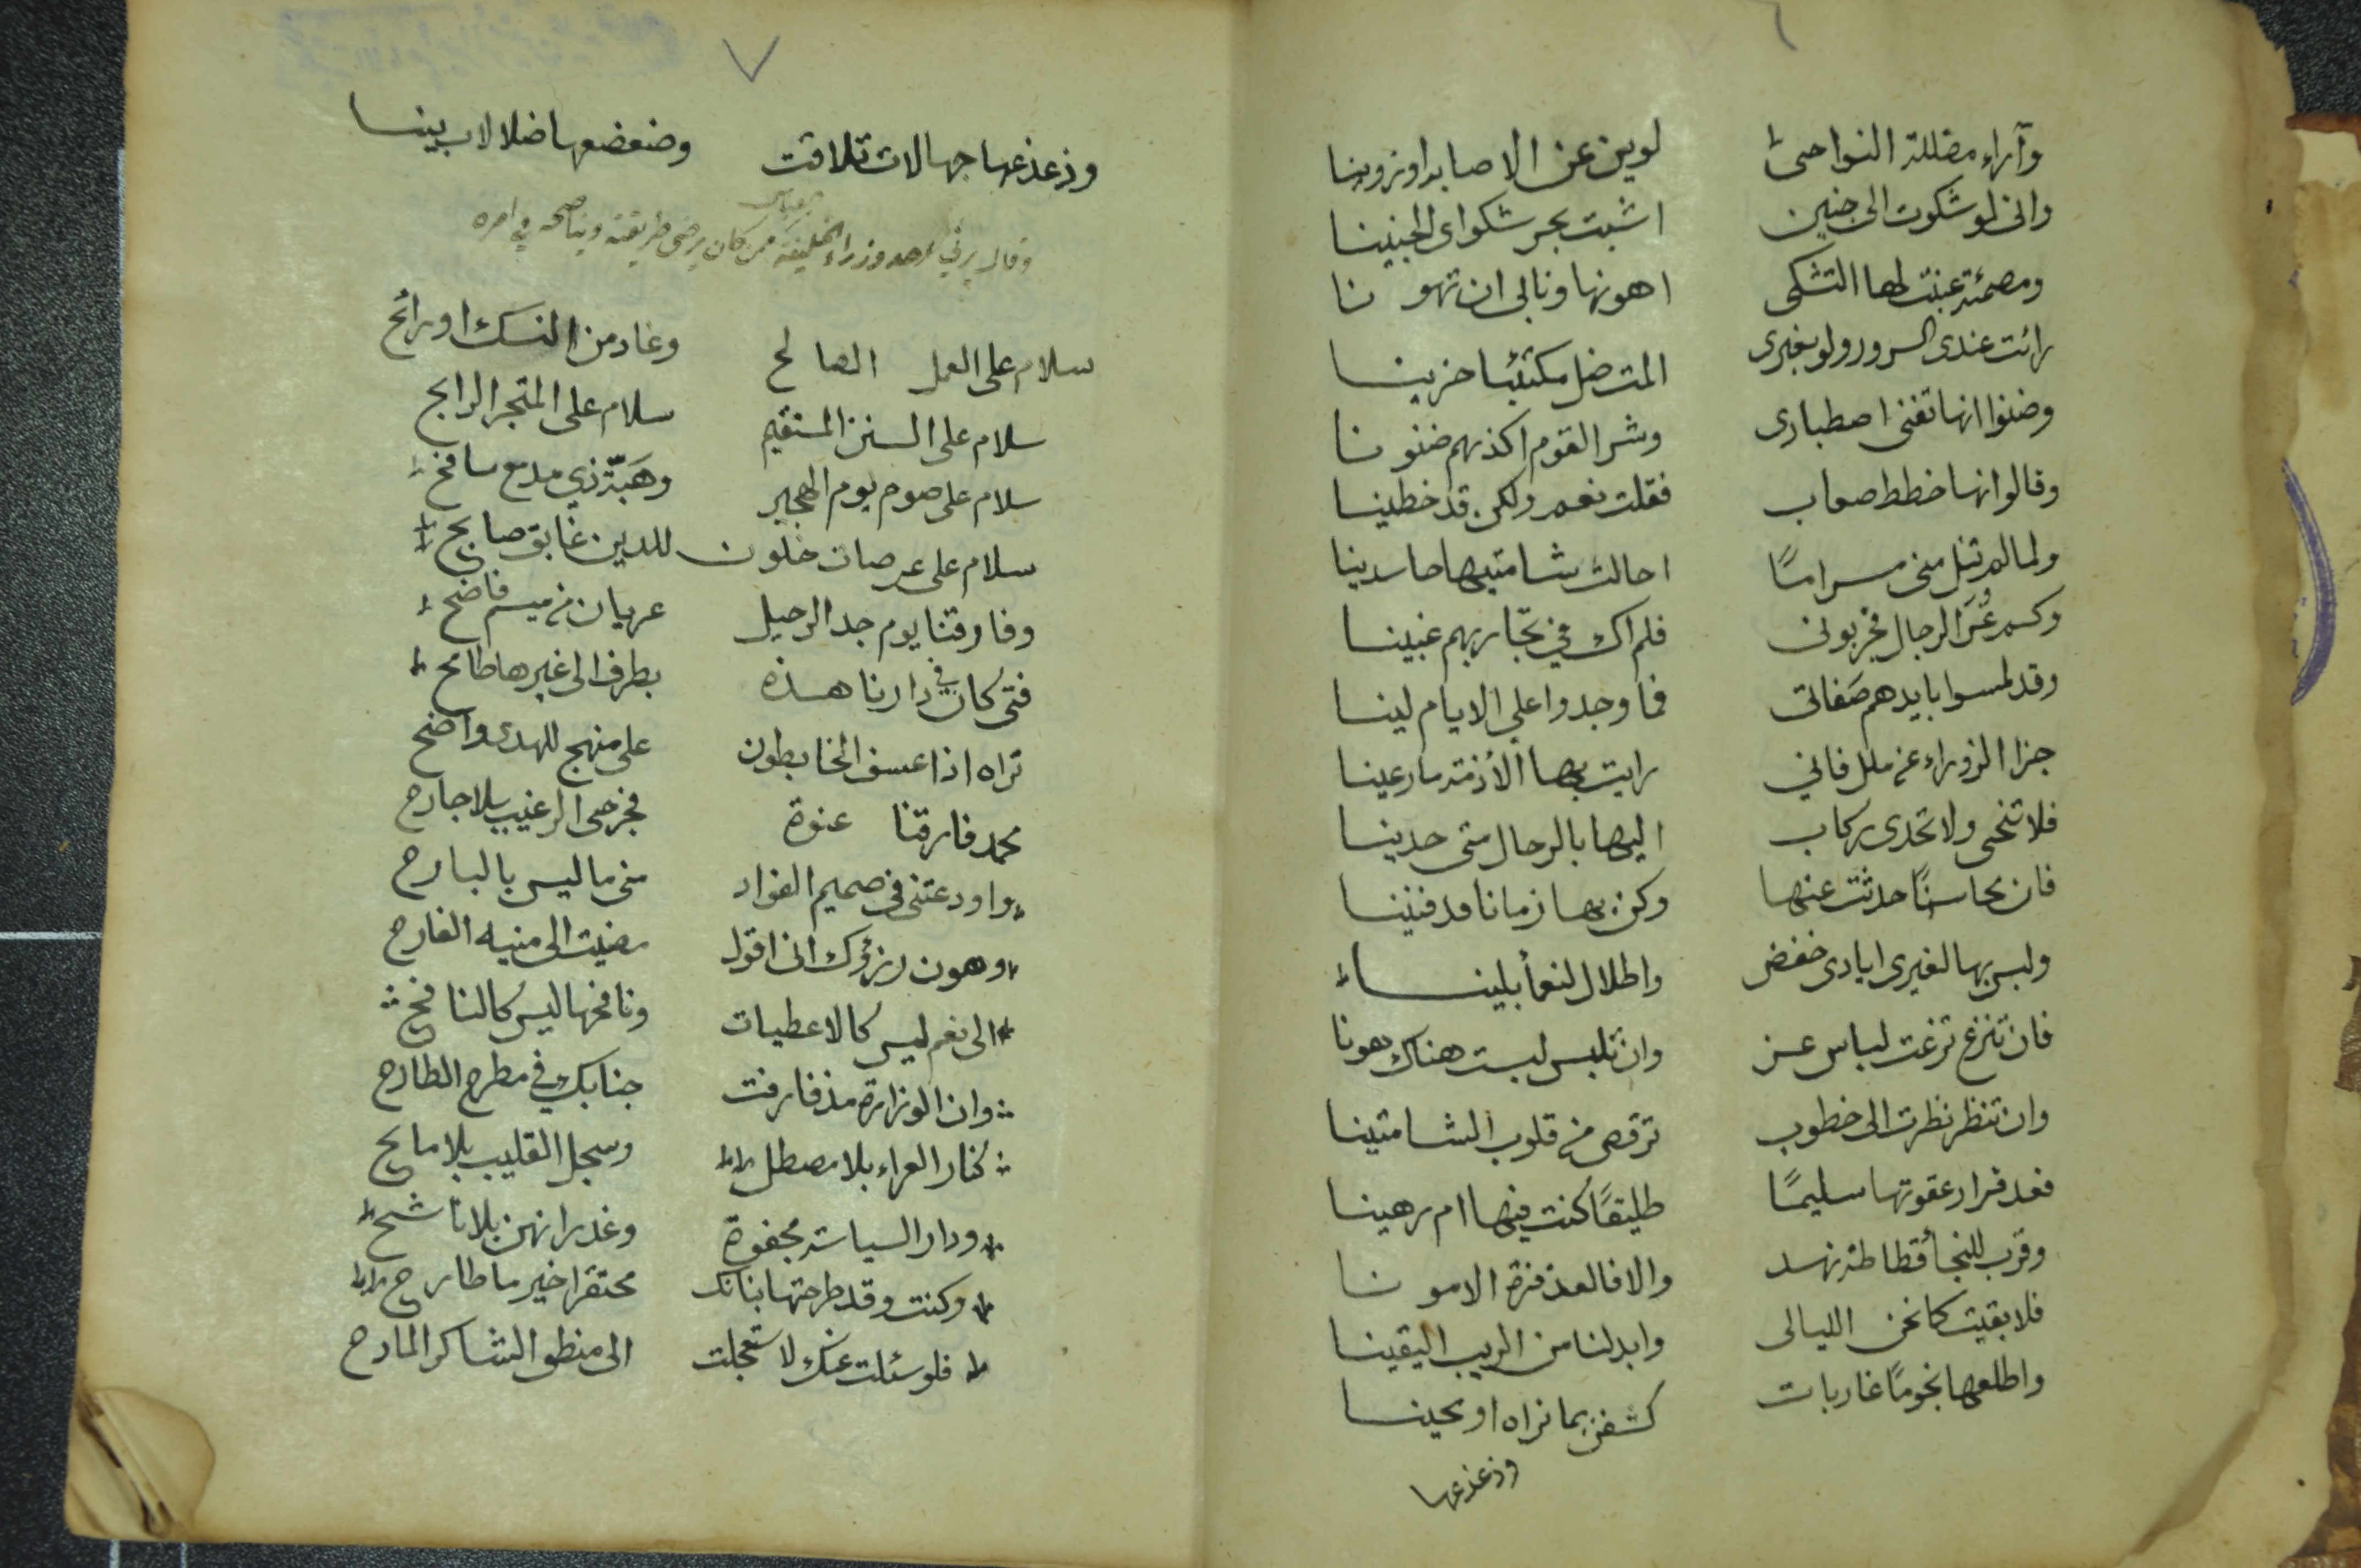 ٦
وآراء مضللة النواحى لوين عن الاصابة او زوينا
وانى لو شكوت الى جنين اشبت بحر شكواى الجنينا
ومصمئة عنت لها التشكى اهونها وتابى ان تهونا
رائت عندى السرور ولو بغيرى المت ضل مكتئبا حزينا
وضنوا انها تفنى اصطبارى وشر القوم اكذبهم ضنونا
وقالوا انها خطط صعاب فقلت نعم ولكن قد خطينا
ولما لم تنل منى مراما احالت شامتيها حاسدينا
وكم غمز الرجال فجربونى فلم اك فى تجاربهم غبينا
وقد لمسوا بايدهم صفاتى فما وجدوا على الايام لينا
جزا الزوراء عن ملل فانى رايت بها الأذمة ما رعينا
فلا تنحى ولا تحدى ركاب اليها بالرحال متى حدينا
فان محاسنًا حدثت عنها وكن بها زمانا قد فنينا
وليس بها لغيرى ايادى خفض واطلال لنعمأ بلينا
فان تنزع نزعت لباس عز وان تلبس لبست هناك هونا
وان تنظر نظرت الى خطوب ترقص من قلوب الشامتينا
فعد فرار عقوتها سليمًا طليقًا كنت فيها ام رهينا
وقرب للنجأ قطاطة نهد والا فالعذفرة الامونا
فلا بقيت كما نحن الليالى وابدلنا من الريب اليقينا
واطلعها نجومًا غاربات كشفن بما نراه او يحينا
وذعذعها
٧
وذعذعها جهالات تلاقت وضعضعها ضلالات بينا
وقال يرثي احد وزراء الخليفة ممن كان يرضى طريقته ويناصحه في امره
سلام على العمل الصالح وغاد من النسك او رائح
سلام على السنن المستقيم سلام على المتجر الرابح
سلام على صوم يوم الهجير وهَبّة ذي مدمع سافح
سلام على عرصات خلون للدين غابق صابح
وفارقنا يوم جد الرحيل عريان من ميسم فاضح
فتى كان في دارنا هذه بطرف الى غيرها طامح
تراه اذا عسف الخابطون على منهج للهدى واضح
محمد فارقنا عنوة فجرحى الرغيب بلا جارح
واودعتنى فى صميم الفؤاد منى ما ليس بالبارح
وهون رزؤك انى اقول مضيت الى منيه الفارح
الى نعم ليس كالاعطيات ونافحها ليس كالنافح
وان الوزارة مذ فارقت جنابك في مطرح الطارح
كنار العراء بلا مصطل وسجل القليب بلا مايح
ودار السياسة مجفوة وغدرانهن بلا ناشح
وكنت وقد طرحتها بنانك محتقرا خير ما طارح
فلو سئلت عنك لاستعجلت الى منطق الشاكر المادح